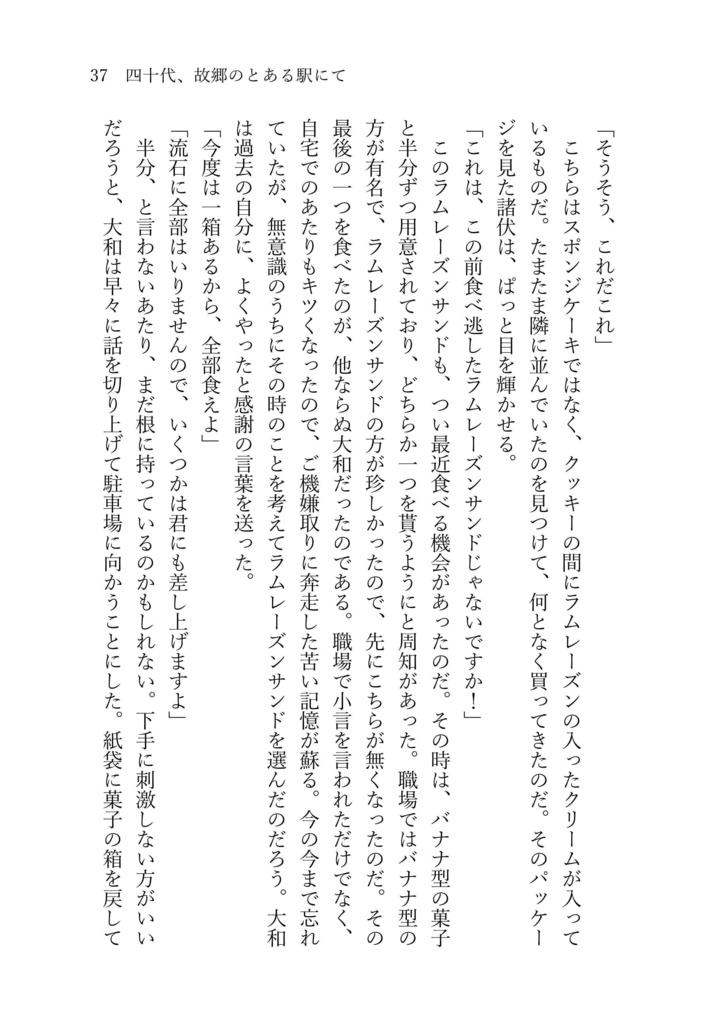 37　四十代、故郷のとある駅にて
「そうそう、これだこれ」
　こちらはスポンジケーキではなく、クッキーの間にラムレーズンの入ったクリームが入って
いるものだ。たまたま隣に並んでいたのを見つけて、何となく買ってきたのだ。そのパッケー
ジを見た諸伏は、ぱっと目を輝かせる。
「これは、この前食べ逃したラムレーズンサンドじゃないですか！」
　このラムレーズンサンドも、つい最近食べる機会があったのだ。その時は、バナナ型の菓子
と半分ずつ用意されており、どちらか一つを貰うようにと周知があった。職場ではバナナ型の
方が有名で、ラムレーズンサンドの方が珍しかったので、先にこちらが無くなったのだ。その
最後の一つを食べたのが、他ならぬ大和だったのである。職場で小言を言われただけでなく、
自宅でのあたりもキツくなったので、ご機嫌取りに奔走した苦い記憶が蘇る。今の今まで忘れ
ていたが、無意識のうちにその時のことを考えてラムレーズンサンドを選んだのだろう。大和
は過去の自分に、よくやったと感謝の言葉を送った。
「今度は一箱あるから、全部食えよ」
「流石に全部はいりませんので、いくつかは君にも差し上げますよ」
　半分、と言わないあたり、まだ根に持っているのかもしれない。下手に刺激しない方がいい
だろうと、大和は早々に話を切り上げて駐車場に向かうことにした。紙袋に菓子の箱を戻して